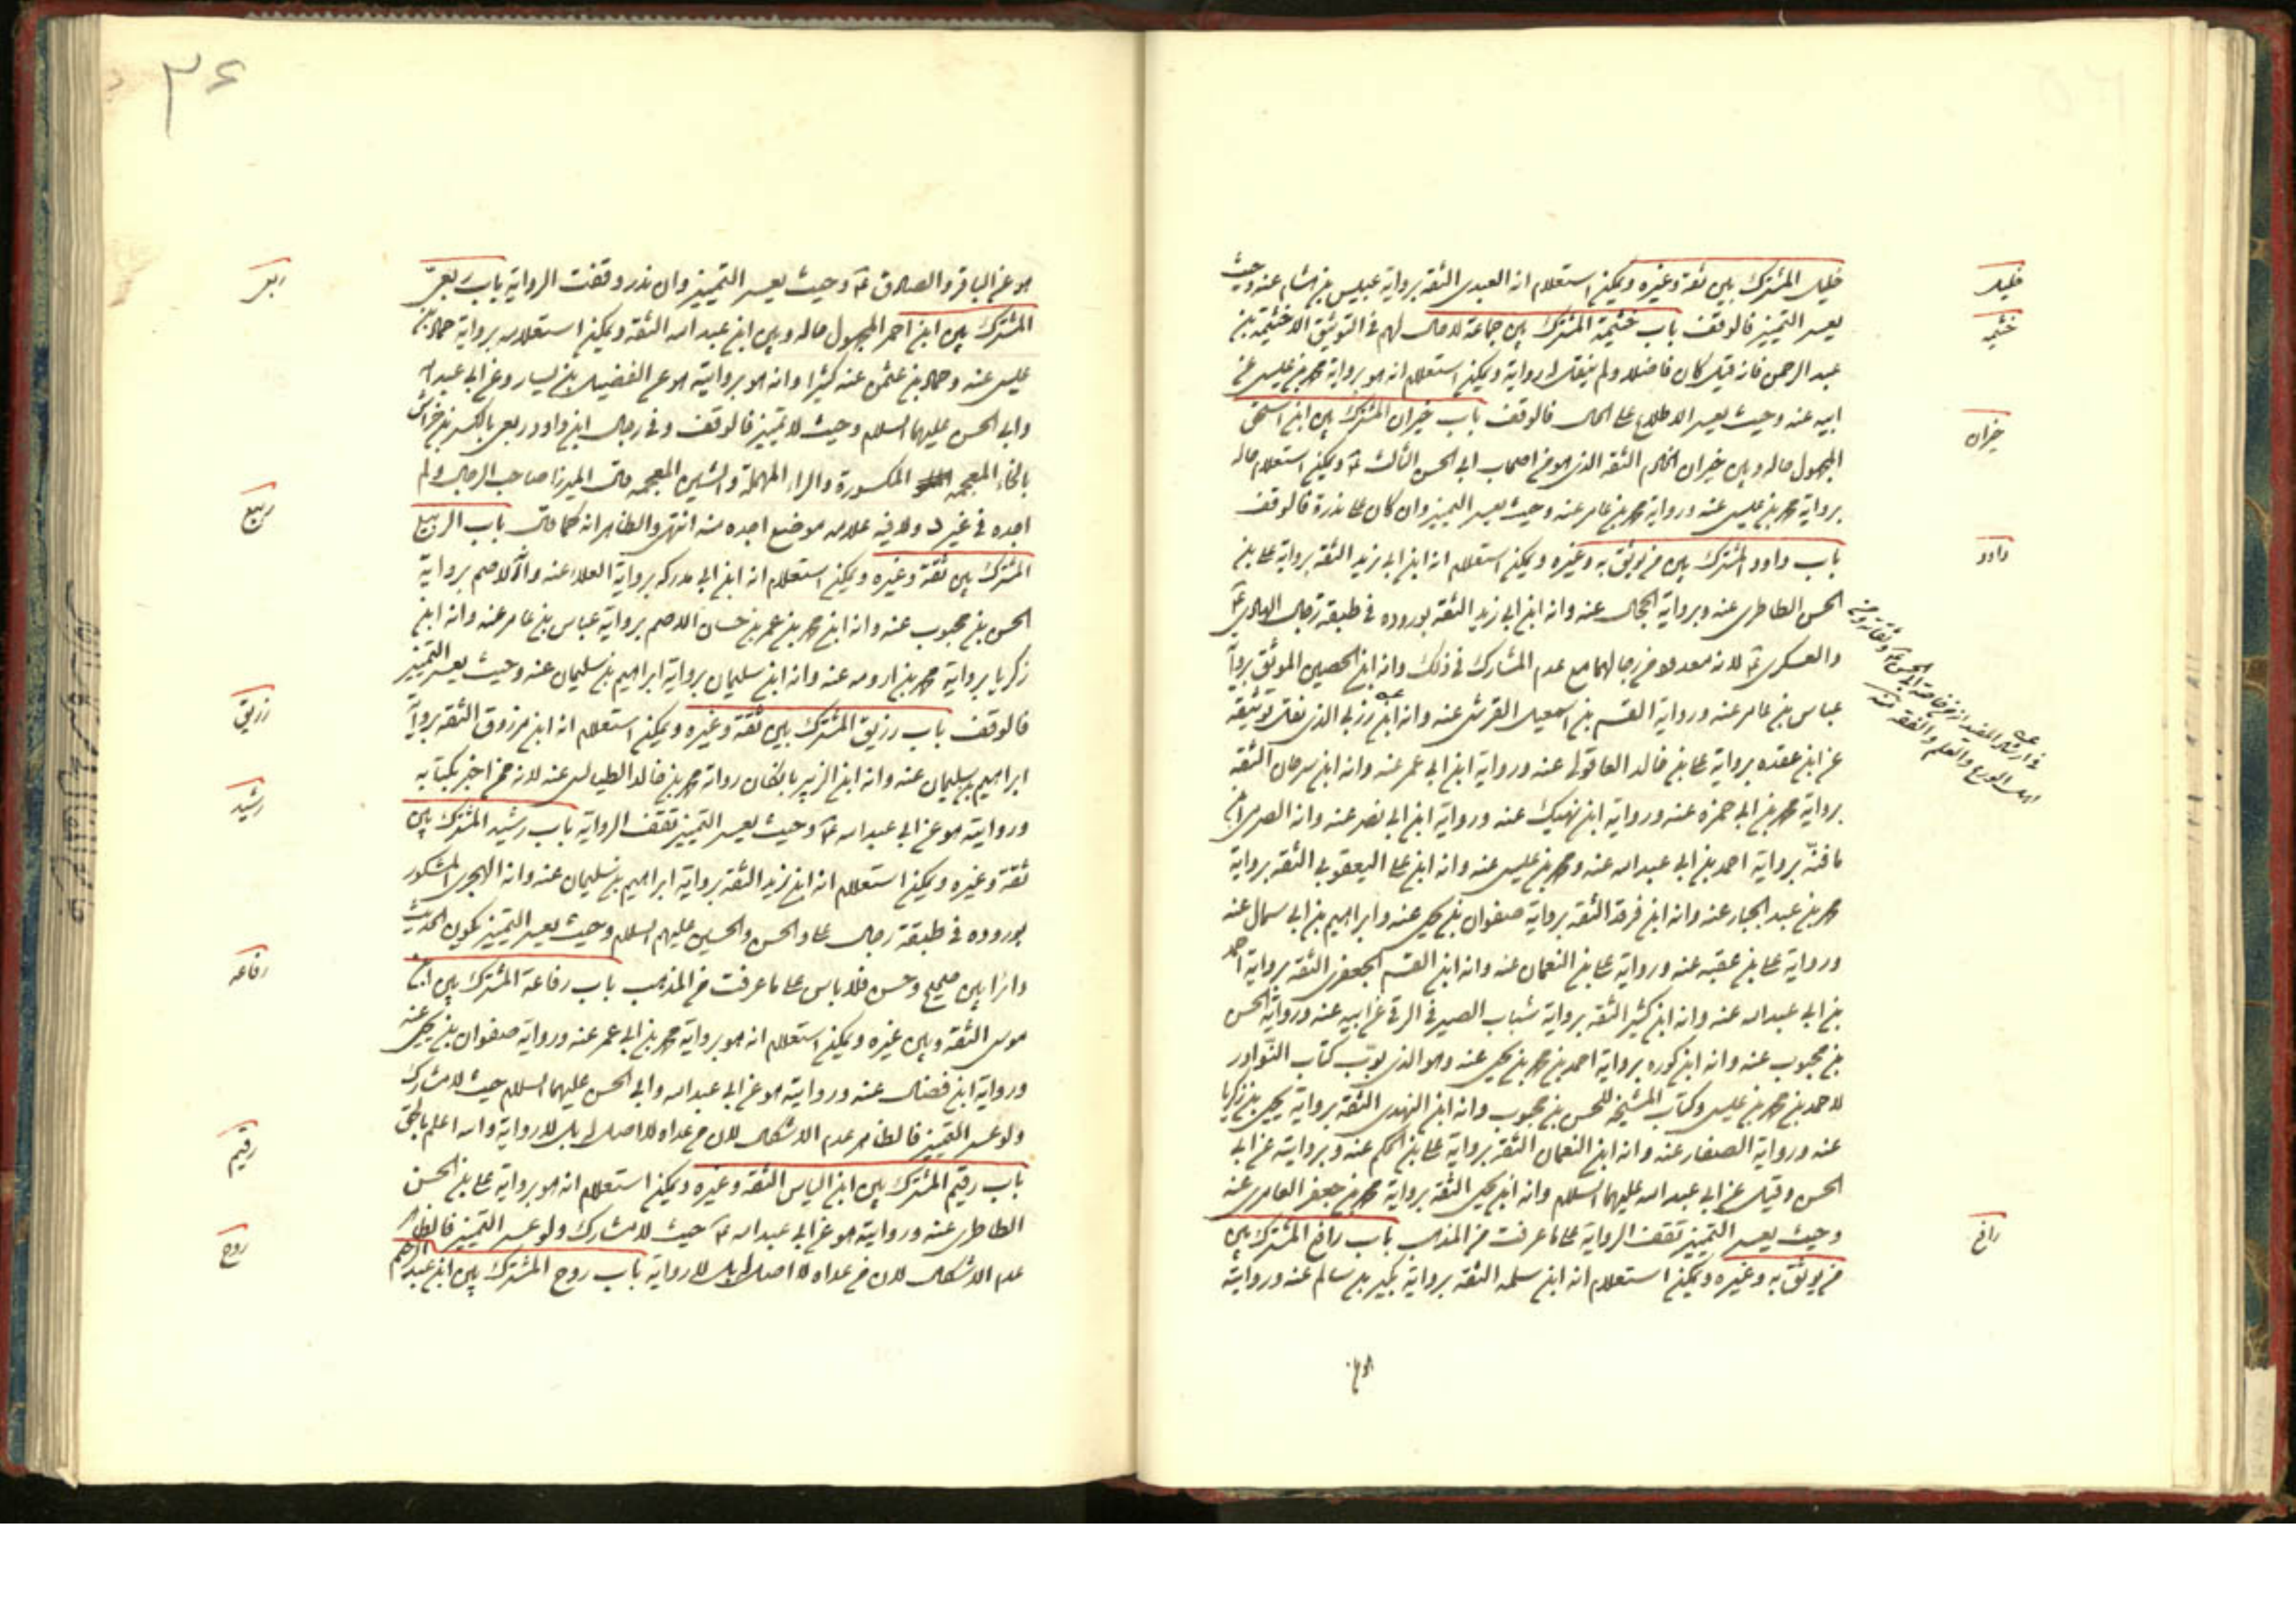 خليل المشترك بين ثقة وغيره ويمكن استعلام انه العبدى الثقة برواية عبيس بن هشام عنه وحيث
يعسر التمييز فالوقف باب خثيمة المشترك بين جماعة لا حال لهم فى التوثيق الا خثيمة بن
عبد الرحمن فانه قيل كان فاضلا ولم ينقل له رواية ويمكن استعلام انه هو برواية محمد بن عيسى عن
ابيه عنه وحيث يعسر الاطلاع على الحال فالوقف باب خيران المشترك بين ابن اسحق
المجهول حاله وبين خيران الخادم الثقة الذى هو من اصحاب ابى الحسن الثالث ع ويمكن استعلام حاله
برواية محمد بن عيسى عنه ورواية محمد بن عامر عنه وحيث يعسر التميز وان كان على ندرة فالوقف
باب داود المشترك بين من يوثق به وغيره ويمكن استعلام انه ابن ابى زيد الثقة برواية على بن
الحسن الطاطرى عنه وبرواية الحجال عنه وانه ابن ابى زيد الثقة بوروده فى طبقة رجال الهادى ع
والعسكرى ع لانه معدود من رجالهما مع عدم المشارك فى ذلك وانه ابن الحصين الموثق برواية
عباس بن عامر عنه ورواية القسم بن اسمعيل القرشى عنه وانه ابن زربى الذى نقل توثيقه
عن ابن عقده برواية على بن خالد العاقولى عنه ورواية ابن ابى عمر عنه وانه ابن سرحان الثقة
برواية محمد بن ابى حمزه عنه ورواية ابن نهيك عنه ورواية ابن ابى نصر عنه وانه الصرمى ابن
مافنّه برواية احمد بن ابى عبد الله عنه ومحمد بن عيسى عنه وانه ابن على اليعقوبى الثقة برواية
محمد بن عبد الجبار عنه وانه ابن فرقد الثقة برواية صفوان بن يحيى عنه وابراهيم بن ابى سمال عنه
ورواية على بن عقبه عنه ورواية على بن النعمان عنه وانه ابن القسم الجعفرى الثقة برواية احمد
بن ابى عبد الله عنه وانه ابن كثير الثقة برواية شباب الصيرفى الرقى عن ابيه عنه ورواية الحسن
بن محبوب عنه وانه ابن كوره برواية احمد بن محمد بن يحيى عنه وهو الذى بوّب كتاب النوادر
لاحمد بن محمد بن عيسى وكتاب المشيخة للحسن بن محبوب وانه ابن النهدى الثقة برواية يحيى بن زكريا
عنه ورواية الصفار عنه وانه ابن النعمان الثقة برواية على بن الحكم عنه وبروايته عن ابى
الحسن وقيل عن ابى عبد الله عليهما السلام وانه ابن يحيى الثقة برواية محمد بن جعفر العامرى عنه
وحيث يعسر التميز تقف الرواية على ما عرفت من المذهب باب رافع المشترك بين
من يوثق به وغيره ويمكن استعلام انه ابن سلمه الثقة برواية بكير بن سالم عنه وروايته
هو عن
خليل
خثيمه
خيران
داود
رافع
فى ارشاد المفيد انه من خاصة ابى الحسن ع وثقاته ومن
اهل الورع والعلم والفقه منه
٣٤
هو عن الباقر والصادق ع وحيث يعسر التمييز وان ندر وقفت الرواية باب ربعى
المشترك بين ابن احمر المجهول حاله وبين ابن عبد الله الثقة ويمكن استعلامه برواية حماد بن
عيسى عنه وحماد بن عثمن عنه كثيرا وانه هو بروايته هو عن الفضيل بن يسار وعن ابى عبد الله
وابى الحسن عليهما السلام وحيث لا تمييز فالوقف وفى رجال ابن داود ربعى بالكسر بن خراش
بالخاء المعجمه المكسورة والراء المهملة والشين المعجمه قال الميرزا صاحب الرجال ولم
اجده فى غير د ولا فيه علامه موضع اجده منه انتهى والظاهر انه كما قال باب الربيع
المشترك بين ثقة وغيره ويمكن استعلام انه ابن ابى مدركه برواية العلاء عنه والا الاصم برواية
الحسن بن محبوب عنه وانه ابن محمد بن عمر بن حسان الاصم برواية عباس بن عامر عنه وانه ابن
زكريا برواية محمد بن ارومه عنه وانه ابن سليمان برواية ابراهيم بن سليمان عنه وحيث يعسر التميز
فالوقف باب رزيق المشترك بين ثقة وغيره ويمكن استعلام انه ابن مرزوق الثقة برواية
ابراهيم بن سليمان عنه وانه ابن الزبير بالخلقان رواته محمد بن خالد الطيالسى عنه لانه ممن اخبر بكتابه
وروايته هو عن ابى عبد الله ع وحيث يعسر التميز تقف الرواية باب رشيد المشترك بين
ثقة وغيره ويمكن استعلام انه ابن زيد الثقة برواية ابراهيم بن سليمان عنه وانه الهجرى المشكور
بوروده فى طبقة رجال على والحسن والحسين عليهم السلام وحيث يعسر التميز يكون الحديث
دائرا بين صحيح وحسن فلا باس على ما عرفت من المذهب باب رفاعة المشترك بين ابن
موسى الثقة وبين غيره ويمكن استعلام انه هو برواية محمد بن ابى عمر عنه ورواية صفوان بن يحيى عنه
ورواية ابن فضال عنه وروايته هو عن ابى عبد الله وابى الحسن عليهما السلام حيث لا مشارك
ولو عسر التميز فالظاهر عدم الاشكال لان من عداه لا اصل له بل لا رواية والله اعلم بالحق
باب رقيم المشترك بين ابن الياس الثقة وغيره ويمكن استعلام انه هو برواية على بن الحسن
الطاطرى عنه وروايته هو عن ابى عبد الله ع حيث لا مشارك ولو عسر التميز فالظاهر
عدم الاشكال لان من عداه لا اصل له بل لا رواية باب روح المشترك بين ابن عبد الرحيم
ربعى
ربيع
رزيق
رشيد
رفاعه
رقيم
روح